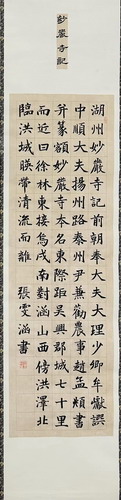 妙嚴寺記
湖州妙嚴寺記前朝奉大夫大理少卿牟巘譔
中順大夫揚州路泰州尹兼勸農事趙孟頫書
并篆額妙嚴寺本名東際距吳興郡城七十里
而近曰徐林東接烏戍南對涵山西傍洪澤北
臨洪城映帶清流而離 張雯涵書